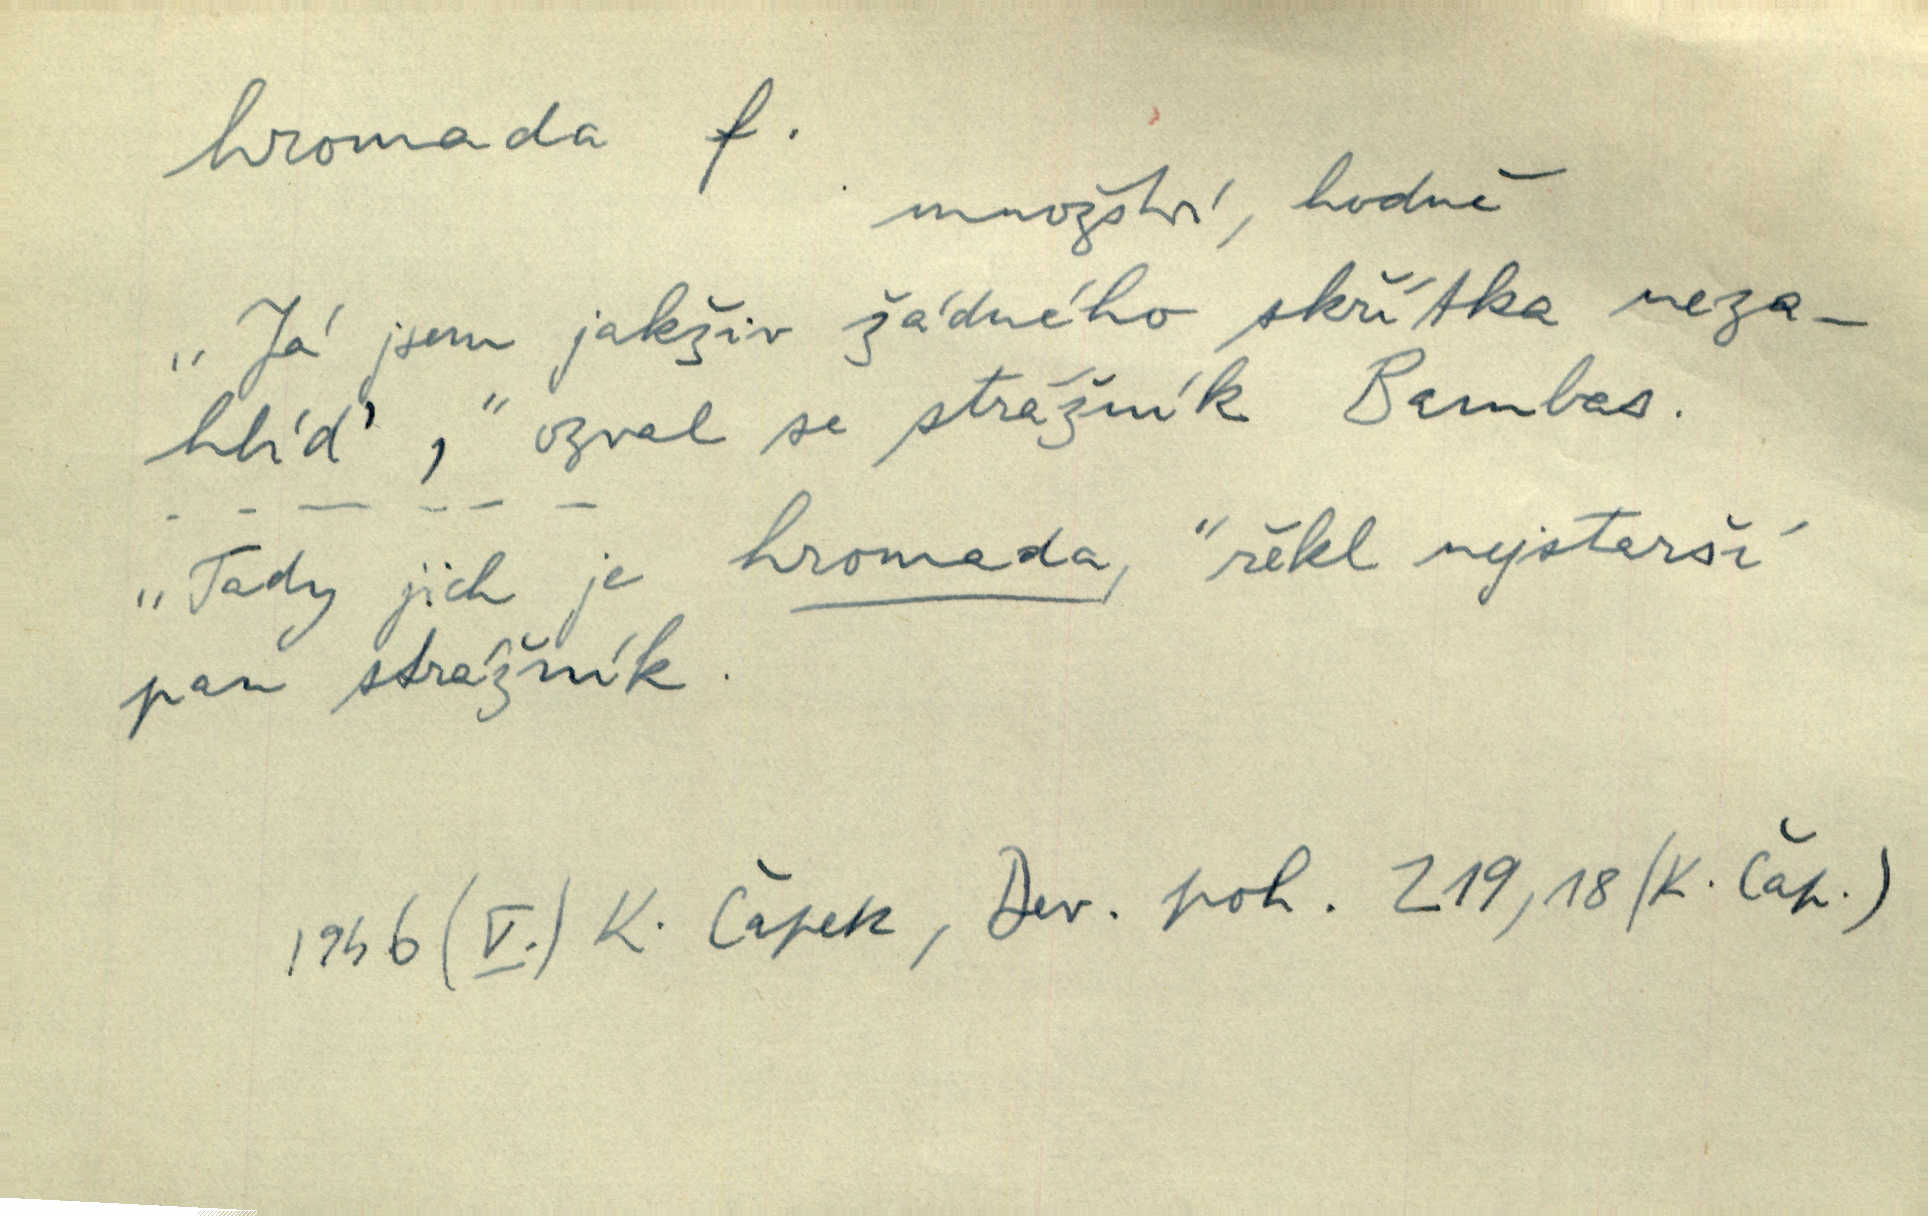 hromada f.
množství, hodně
„Já jsem jakživ žádného skřítka neza-
hlíd', “ ozval se strážník Bambas.
- - — - - -
„Tady jich je hromada, “ řekl nejstarší
pan strážník.
1946 (V.) K. Čapek, Dev. poh. 219, 18 (K. Čap.)